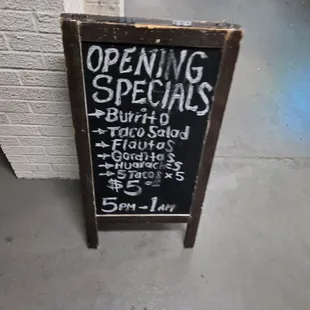 OPENING
SPECIALS
→Burrito
→Taco Salad
→Flautas
→Gorditas
→Huaraches
→5 Tacos x 5
$5
5PM→1AM